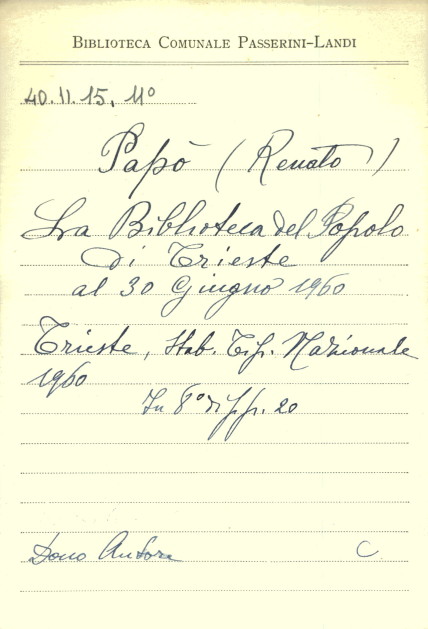 BIBLIOTECA COMUNALE PASSERINI-LANDI
40.II.15, 11º
Papò (Renato)
La Biblioteca del Popolo
di Trieste
al 30 Giugno 1960
Trieste, Stab. Tip. Nazionale
1960
In 8º di pp. 20
Dono Autore C